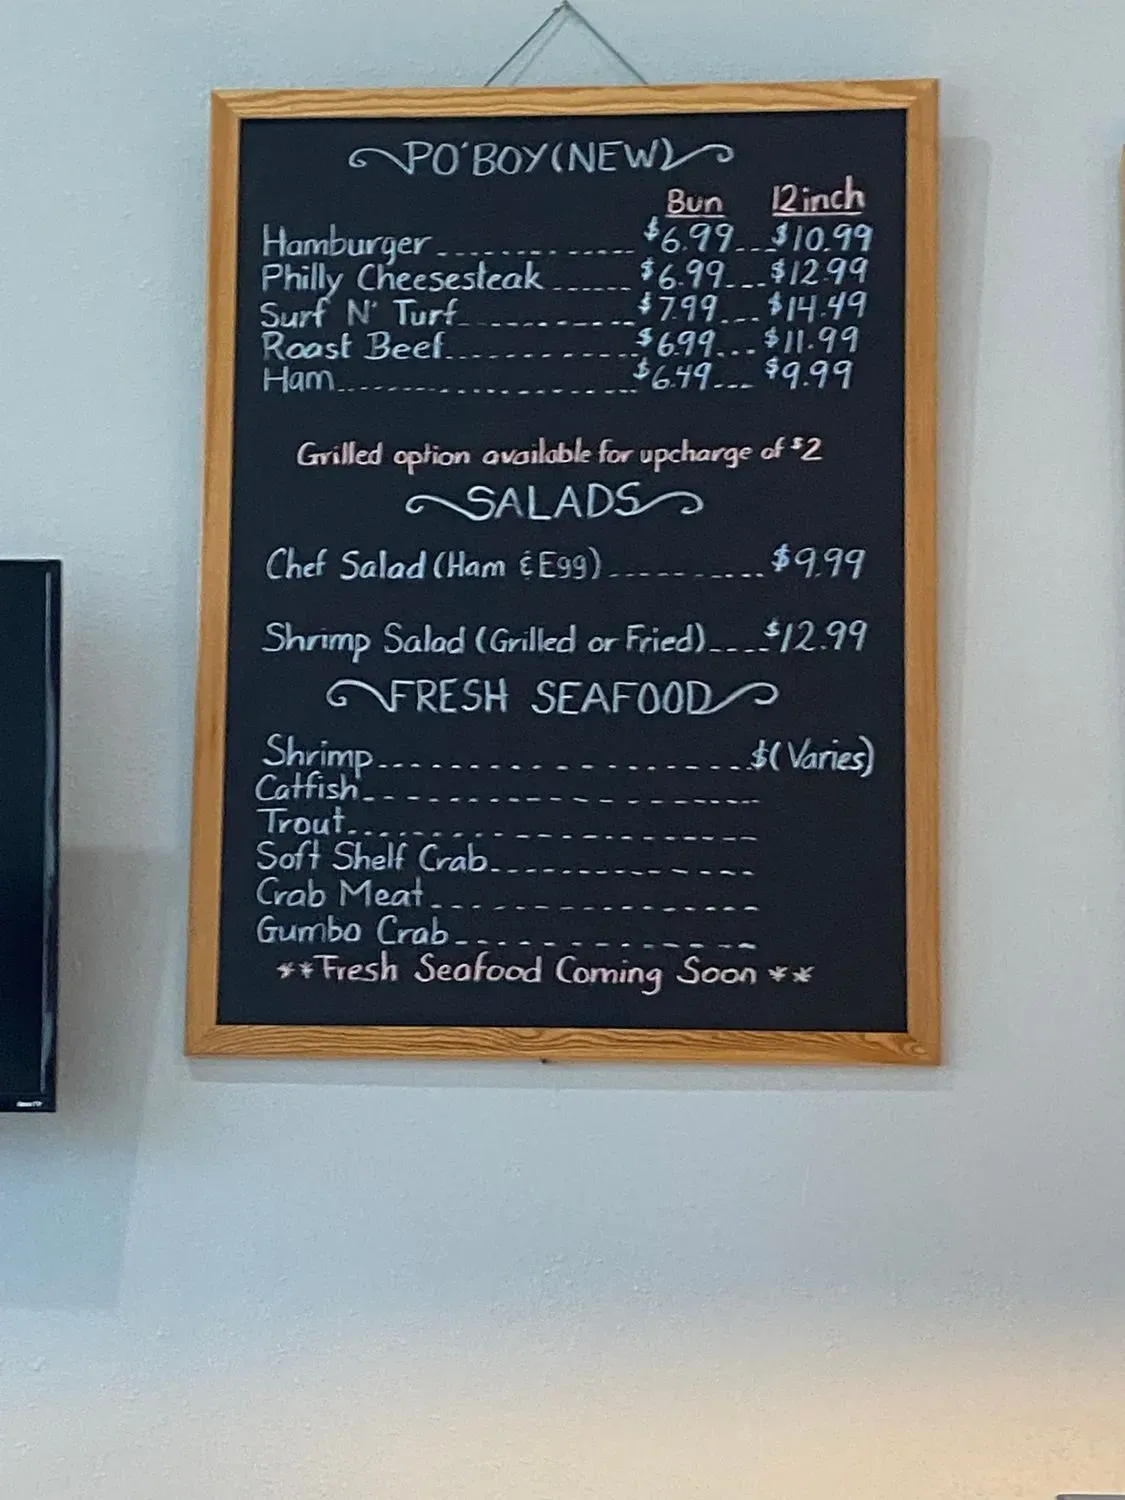 PO'BOY (NEW)
Bun 12 inch
Hamburger ............ $6.99 ... $10.99
Philly Cheesesteak ...... $6.99 ... $12.99
Surf N' Turf ............ $7.99 ... $14.49
Roast Beef ............ $6.99 ... $11.99
Ham ............ $6.49 ... $9.99
Grilled option available for upcharge of $2
SALADS
Chef Salad (Ham & Egg) .......... $9.99
Shrimp Salad (Grilled or Fried) .... $12.99
FRESH SEAFOOD
Shrimp .................... $(Varies)
Catfish ....................
Trout ....................
Soft Shelf Crab ..............
Crab Meat ..................
Gumbo Crab ................
**Fresh Seafood Coming Soon**